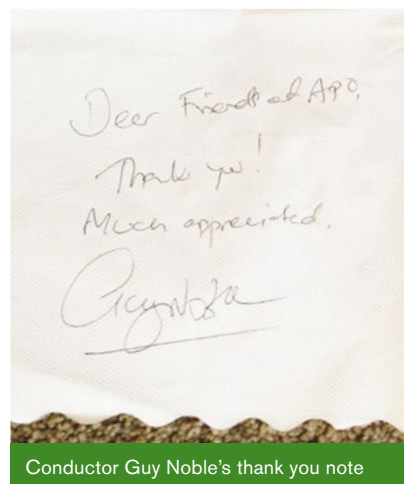 Dear Friends of APO,
Thank you!
Much appreciated.
Guy Noble
Conductor Guy Noble's thank you note